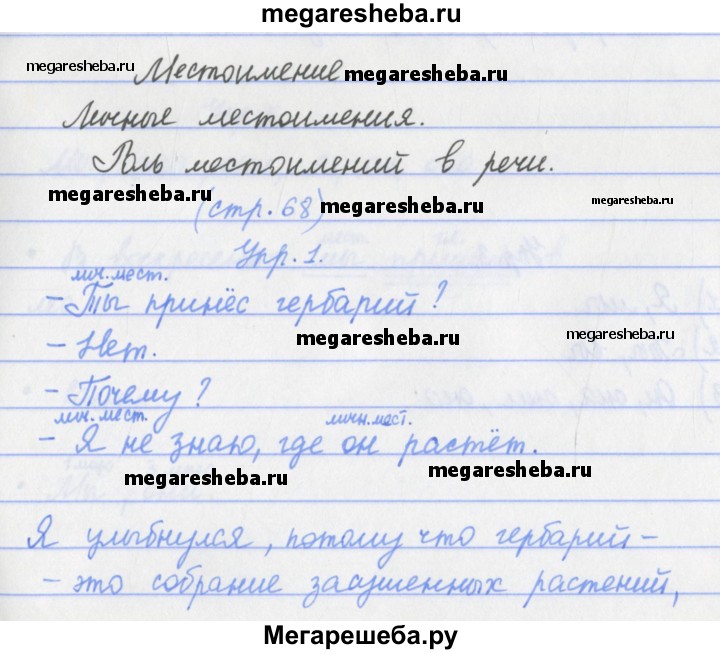 megaresheba.ru
megaresheba.ru Местоимение megaresheba.ru
Личные местоимения.
Роль местоимений в речи.
megaresheba.ru (стр. 68) megaresheba.ru megaresheba.ru
Упр. 1.
лич. мест.
- Ты принёс гербарий?
- Нет. megaresheba.ru megaresheba.ru
- Почему?
лич. мест. личн. мест.
- Я не знаю, где он растёт.
megaresheba.ru megaresheba.ru
Я улыбнулся, потому что гербарий -
- это собрание засушенных растений,
Мегарешеба.ру